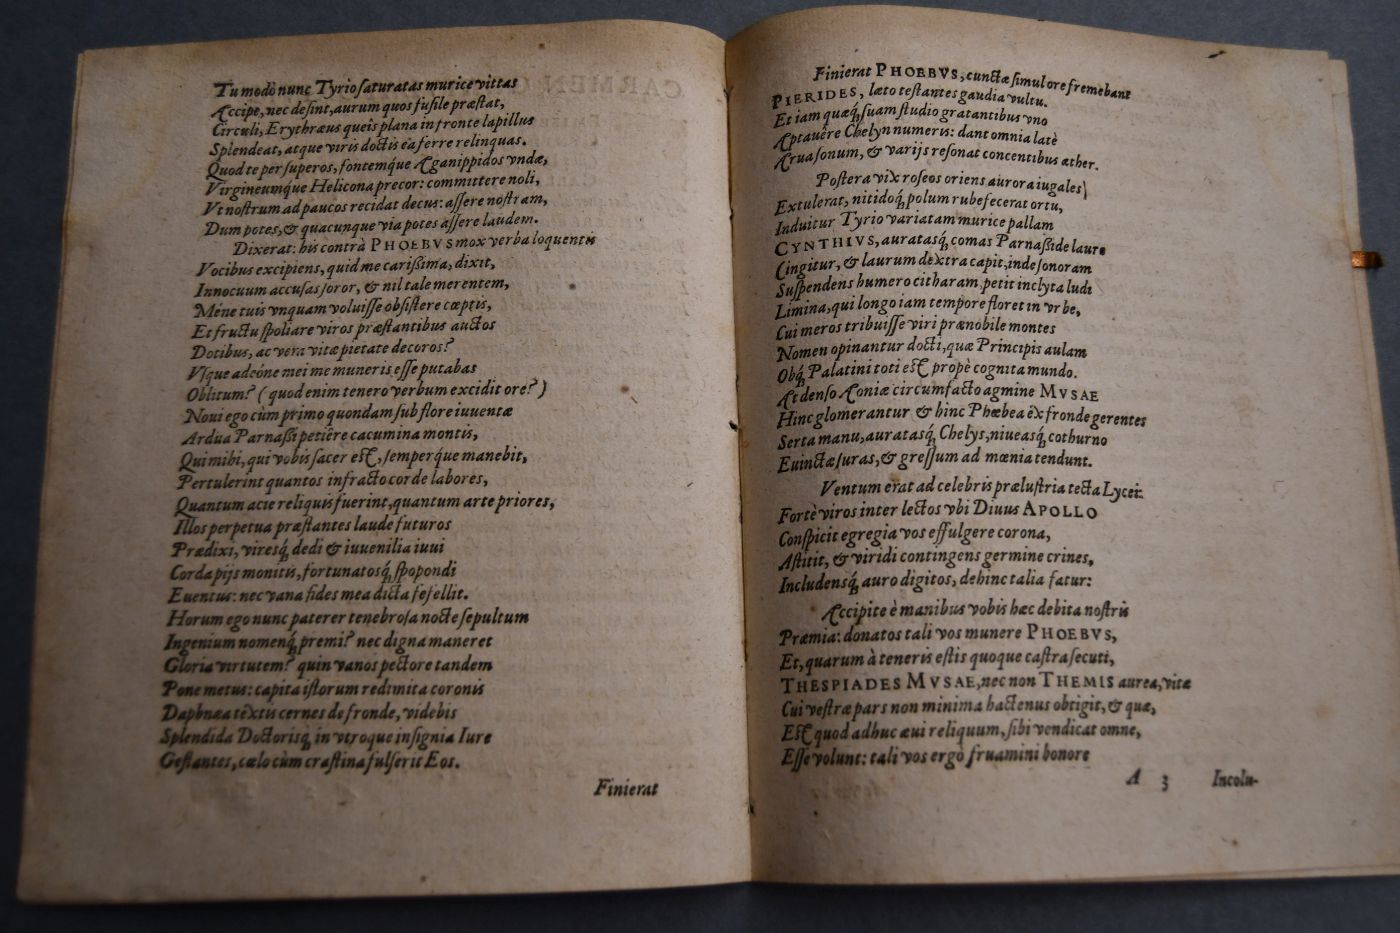 Tu modò nunc Tyrio saturatas murice vittas
Accipe, nec desint, aurum quos fusile præstat,
Circuli, Erythræus queîs plana in fronte lapillus
Splendeat, atque viris doctis ea ferre relinquas.
Quod te per superos, fontemq́ue Aganippidos vndæ,
Virgineumq́ue Helicona precor: committere noli,
Vt nostrum ad paucos recidat decus: assere nostram,
Dum potes, & quacunque via potes assere laudem.
Dixerat: his contrà PHOEBVS mox verba loquentis
Vocibus excipiens, quid me carißima, dixit,
Innocuum accusas soror, & nil tale merentem,
Méne tuis vnquam voluisse obsistere cœptis,
Et fructu spoliare viros præstantibus auctos
Dotibus, ac vera vitæ pietate decoros?
Vsque adeóne mei me muneris esse putabas
Oblitum? (quod enim tenero verbum excidit ore?)
Noui ego cùm primo quondam sub flore iuuentæ
Ardua Parnaßi petiêre cacumina montis,
Qui mihi, qui vobis sacer est, semperque manebit,
Pertulerint quantos infracto corde labores,
Quantum acie reliquis fuerint, quantum arte priores,
Illos perpetua præstantes laude futuros
Prædixi, viresq́; dedi & iuuenilia iuui
Corda pijs monitis, fortunatosq́; spopondi
Euentus: nec vana fides mea dicta fefellit.
Horum ego nunc paterer tenebrosa nocte sepultum
Ingenium nomenq́; premi? nec digna maneret
Gloria virtutem? quin vanos pectore tandem
Pone metus: capita istorum redimita coronis
Daphnæa têxtis cernes de fronde, videbis
Splendida Doctorisq́; in vtroque insignia Iure
Gestantes, cœlo cùm crastina fulserit Eos.
Finierat
Finierat PHOEBVS, cunctæ simul ore fremebant
PIERIDES, læto testantes gaudia vultu.
Et iam quæq́; suam studio gratantibus vno
Aptauêre Chelyn numeris: dant omnia latè
Arua sonum, & varijs resonat concentibus æther.
Postera vix roseos oriens aurora iugales
Extulerat, nitidoq́; polum rubefecerat ortu,
Induitur Tyrio variatam murice pallam
CYNTHIVS, auratasq́; comas Parnaßide lauro
Cingitur, & laurum dextra capit, inde sonoram
Suspendens humero citharam, petit inclyta ludi
Limina, qui longo iam tempore floret in vrbe,
Cui meros tribuisse viri prænobile montes
Nomen opinantur docti, quæ Principis aulam
Obq́; Palatini toti est propè cognita mundo.
At denso Aoniæ circumfacto agmine MVSAE
Hinc glomerantur & hinc Phœbea êx fronde gerentes
Serta manu, auratasq́; Chelys, niueasq́; cothurno
Euinctæ suras, & gressum ad mœnia tendunt.
Ventum erat ad celebris prælustria tecta Lycei:
Fortè viros inter lectos vbi Diuus APOLLO
Conspicit egregia vos effulgere corona,
Astitit, & viridi contingens germine crines,
Includensq́; auro digitos, dehinc talia fatur:
Accipite è manibus vobis hæc debita nostris
Præmia: donatos tali vos munere PHOEBVS,
Et, quarum à teneris estis quoque castra secuti,
THESPIADES MVSAE, nec non THEMIS aurea, vitæ
Cui vestræ pars non minima hactenus obtigit, & quæ,
Est quod adhuc æui reliquum, sibi vendicat omne,
Esse volunt: tali vos ergò fruamini honore
A 3 Incolu-